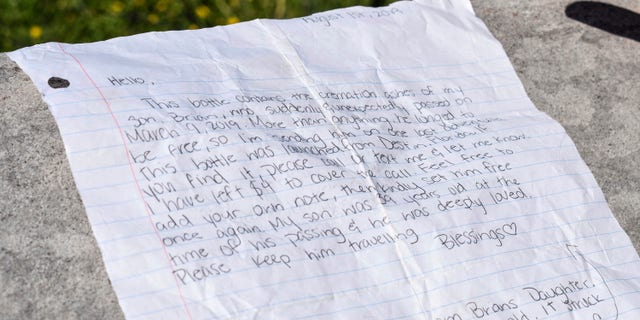 August 1st, 2019
Hello,
This bottle contains the cremation ashes of my
son Brian, who suddenly & unexpectedly passed on
March 9, 2019. More than anything, he wanted to
be free, so I'm sending him on one last adventure.
This bottle was launched from Destin, FL
you find it please call or text me & let me know.
I have left $ to cover the call. Feel free to
add your own note, then kindly set him free
once again. My son was 39 years old at the
time of his passing & he was deeply loved.
Please keep him travelling
Blessings♡
Brians Daughter,
old. It struck